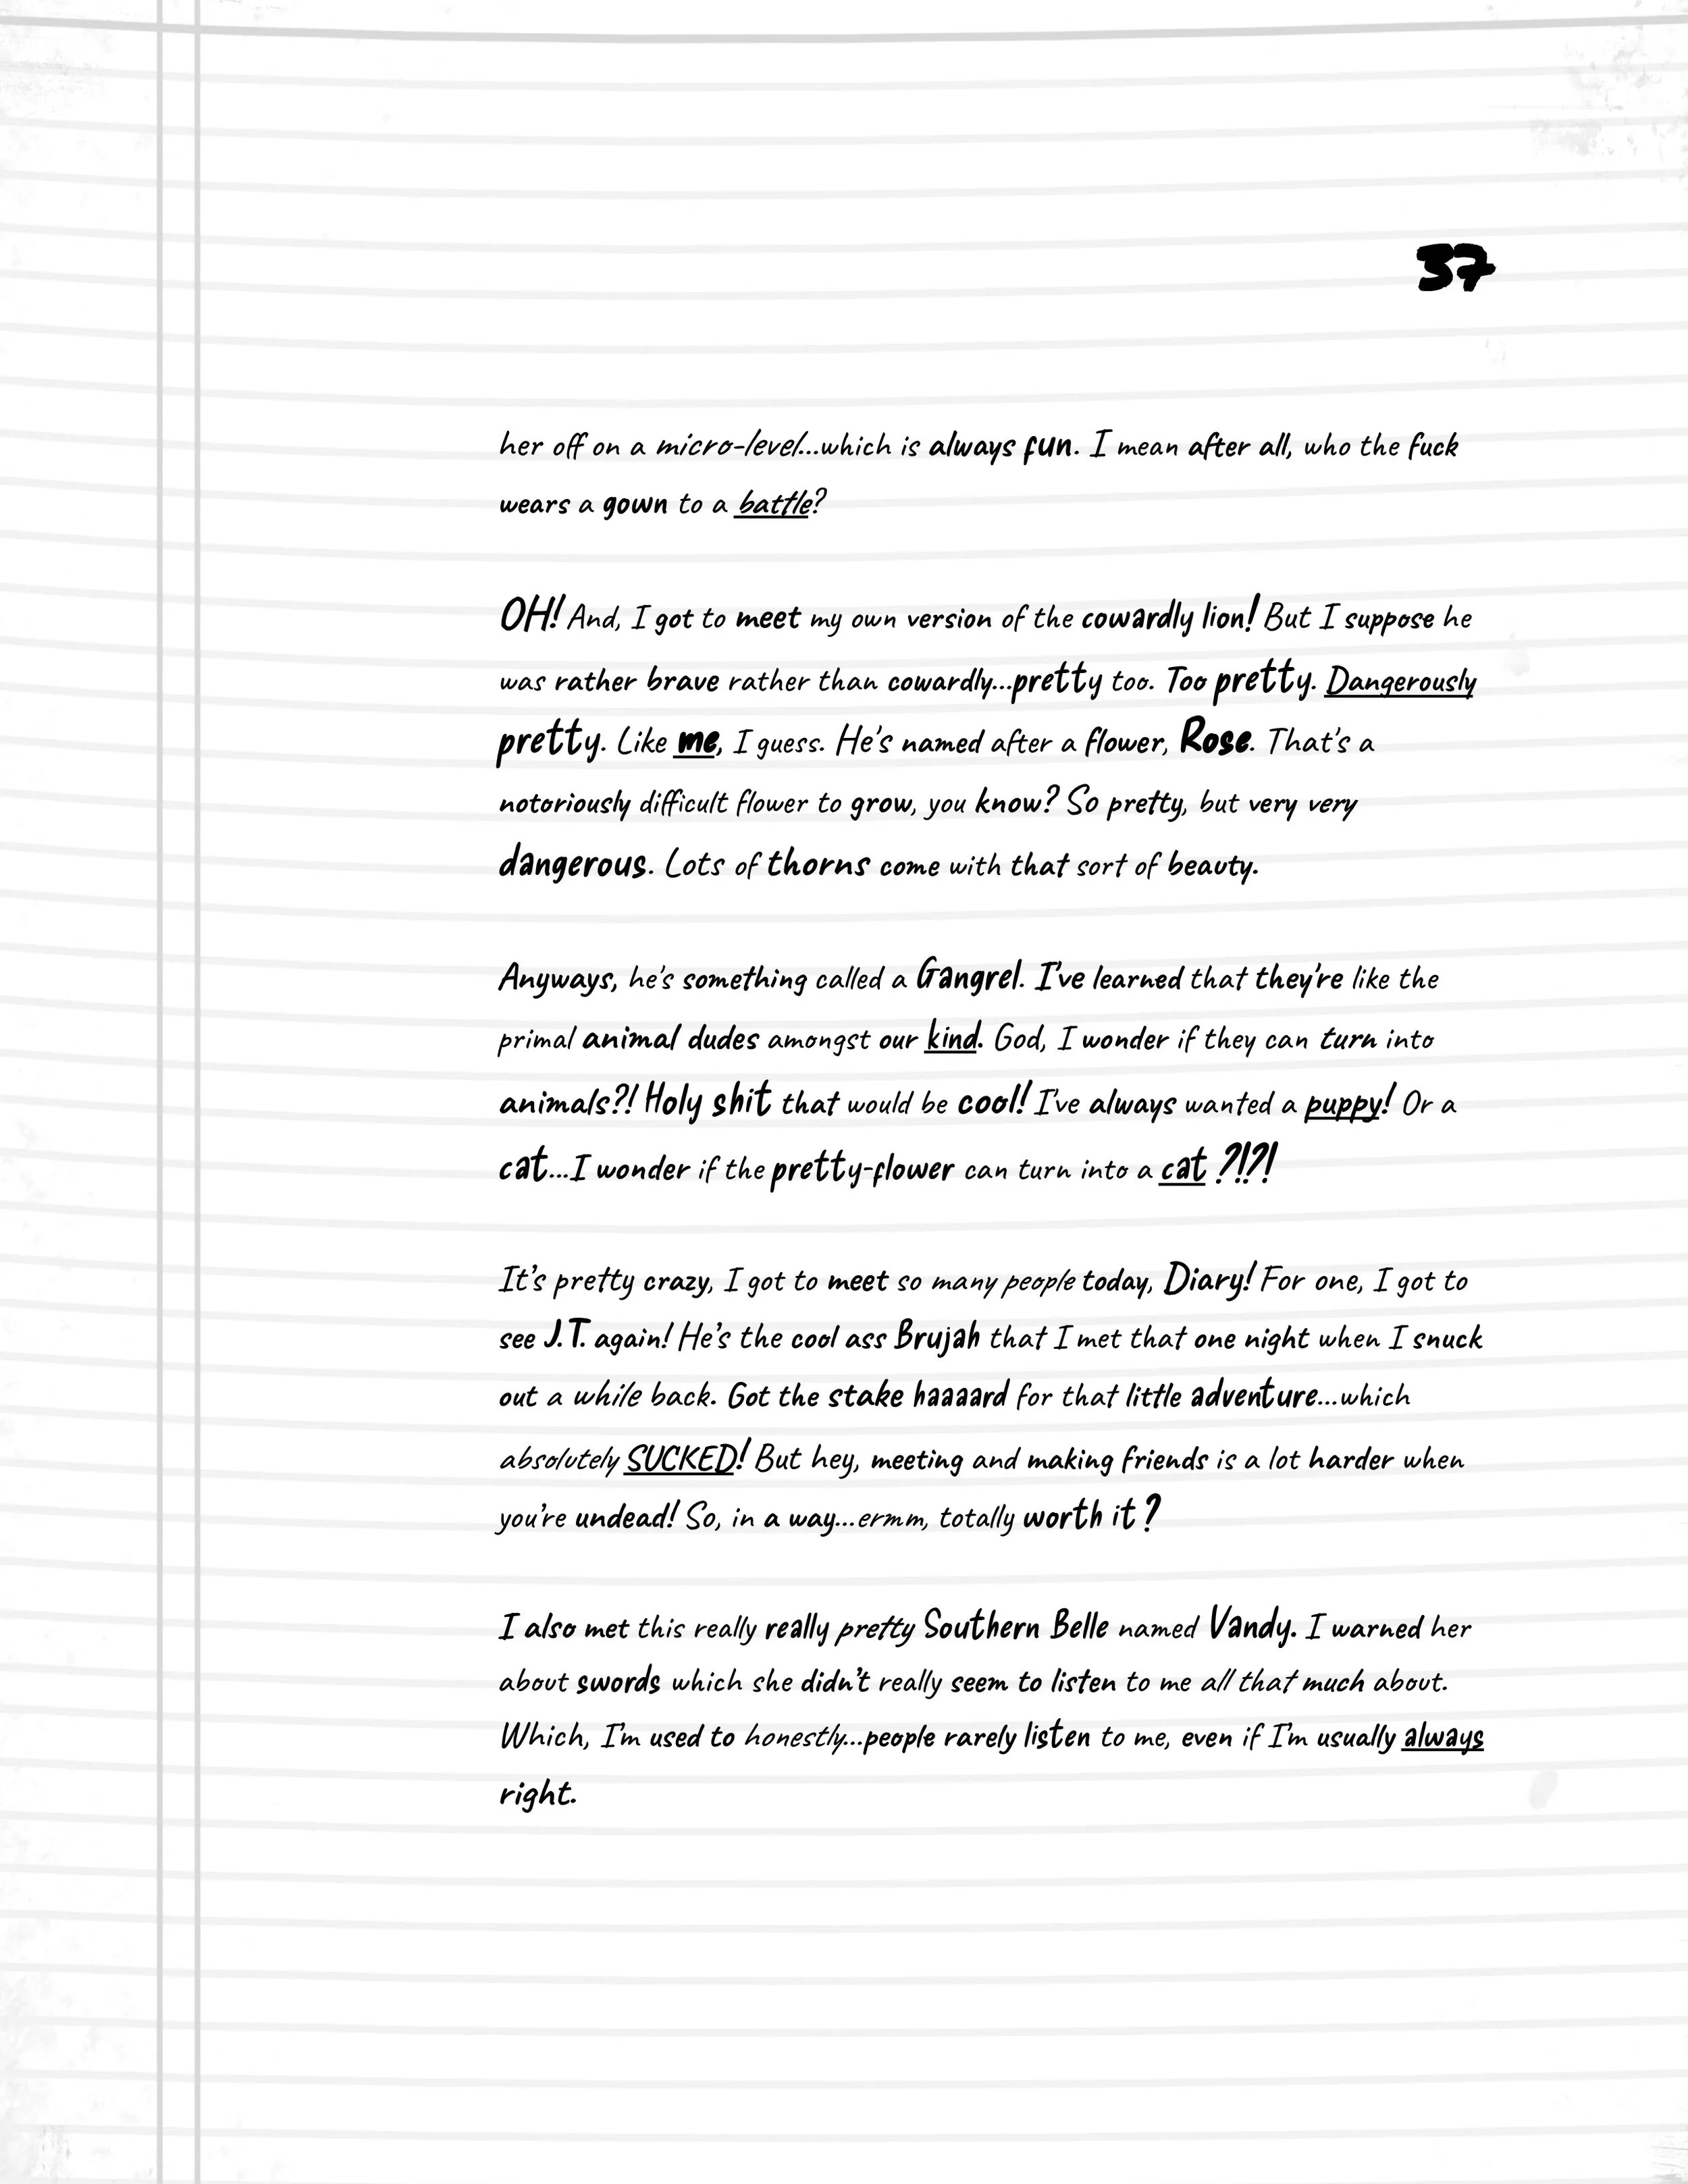 37
her off on a micro-level...which is always fun. I mean after all, who the fuck
wears a gown to a battle?
OH! And, I got to meet my own version of the cowardly lion! But I suppose he
was rather brave rather than cowardly...pretty too. Too pretty. Dangerously
pretty. Like me, I guess. He's named after a flower, Rose. That's a
notoriously difficult flower to grow, you know? So pretty, but very very
dangerous. Lots of thorns come with that sort of beauty.
Anyways, he's something called a Gangrel. I've learned that they're like the
primal animal dudes amongst our kind. God, I wonder if they can turn into
animals?! Holy shit that would be cool! I've always wanted a puppy! Or a
cat...I wonder if the pretty-flower can turn into a cat ?!?!
It's pretty crazy, I got to meet so many people today, Diary! For one, I got to
see J.T. again! He's the cool ass Brujah that I met that one night when I snuck
out a while back. Got the stake haaaard for that little adventure...which
absolutely SUCKED! But hey, meeting and making friends is a lot harder when
you're undead! So, in a way...ermm, totally worth it?
I also met this really really pretty Southern Belle named Vandy. I warned her
about swords which she didn't really seem to listen to me all that much about.
Which, I'm used to honestly...people rarely listen to me, even if I'm usually always
right.